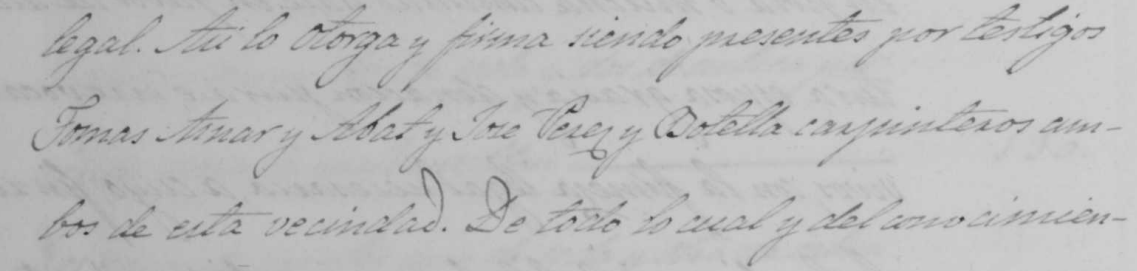 legal. Asi lo otorga y firma siendo presentes por testigos
Tomas Aznar y Abat y Jose Perez y Botella carpinteros am-
bos de esta vecindad. De todo lo cual y del conocimien-